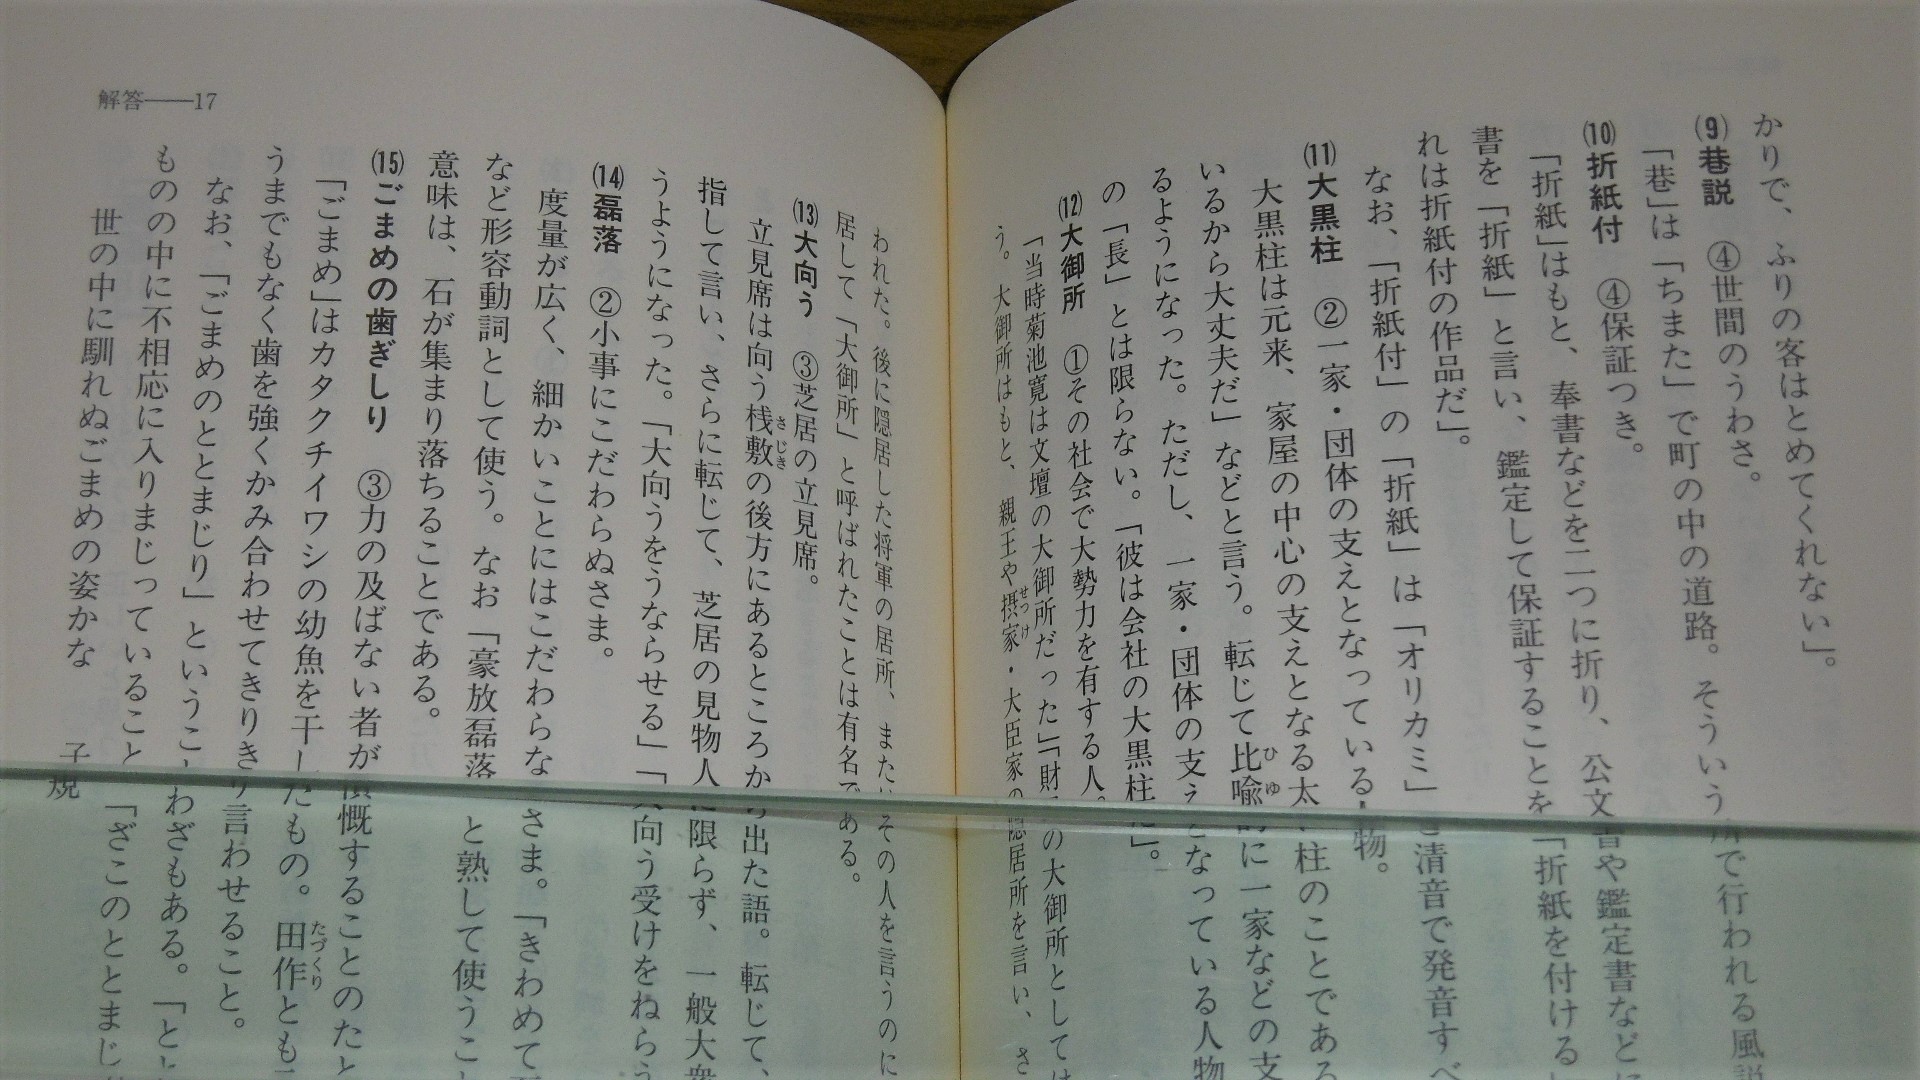 かりで、ふりの客はとめてくれない」。
(9)巷説　④世間のうわさ。
「巷」は「ちまた」で町の中の道路。そういう所で行われる風説
(10)折紙付　④保証つき。
「折紙」はもと、奉書などを二つに折り、公文書や鑑定書などに
書を「折紙」と言い、鑑定して保証することを「折紙を付ける」
れは折紙付の作品だ」。
なお、「折紙付」の「折紙」は「オリカミ」と清音で発音すべ
(11)大黒柱　②一家・団体の支えとなっている人物。
大黒柱は元来、家屋の中心の支えとなる太い柱のことである
いるから大丈夫だ」などと言う。転じて比喩的に一家などの支
るようになった。ただし、一家・団体の支えとなっている人物
の「長」とは限らない。「彼は会社の大黒柱だ」。
(12)大御所　①その社会で大勢力を有する人。
「当時菊池寛は文壇の大御所だった」「財界の大御所としては
う。大御所はもと、親王や摂家・大臣家の隠居所を言い、さ
われた。後に隠居した将軍の居所、またはその人を言うのに
居して「大御所」と呼ばれたことは有名である。
(13)大向う　③芝居の立見席。
立見席は向う桟敷の後方にあるところから出た語。転じて、
指して言い、さらに転じて、芝居の見物人に限らず、一般大衆
うようになった。「大向うをうならせる」「大向う受けをねらう
(14)磊落　②小事にこだわらぬさま。
度量が広く、細かいことにはこだわらないさま。「きわめて
など形容動詞として使う。なお「豪放磊落」と熟して使うこと
意味は、石が集まり落ちることである。
(15)ごまめの歯ぎしり　③力の及ばない者が憤慨することのたと
「ごまめ」はカタクチイワシの幼魚を干したもの。田作とも
うまでもなく歯を強くかみ合わせてきりきり言わせること。
なお、「ごまめのととまじり」ということわざもある。「とと
ものの中に不相応に入りまじっていること「ざこのととまじ
世の中に馴れぬごまめの姿かな　子規
解答——17